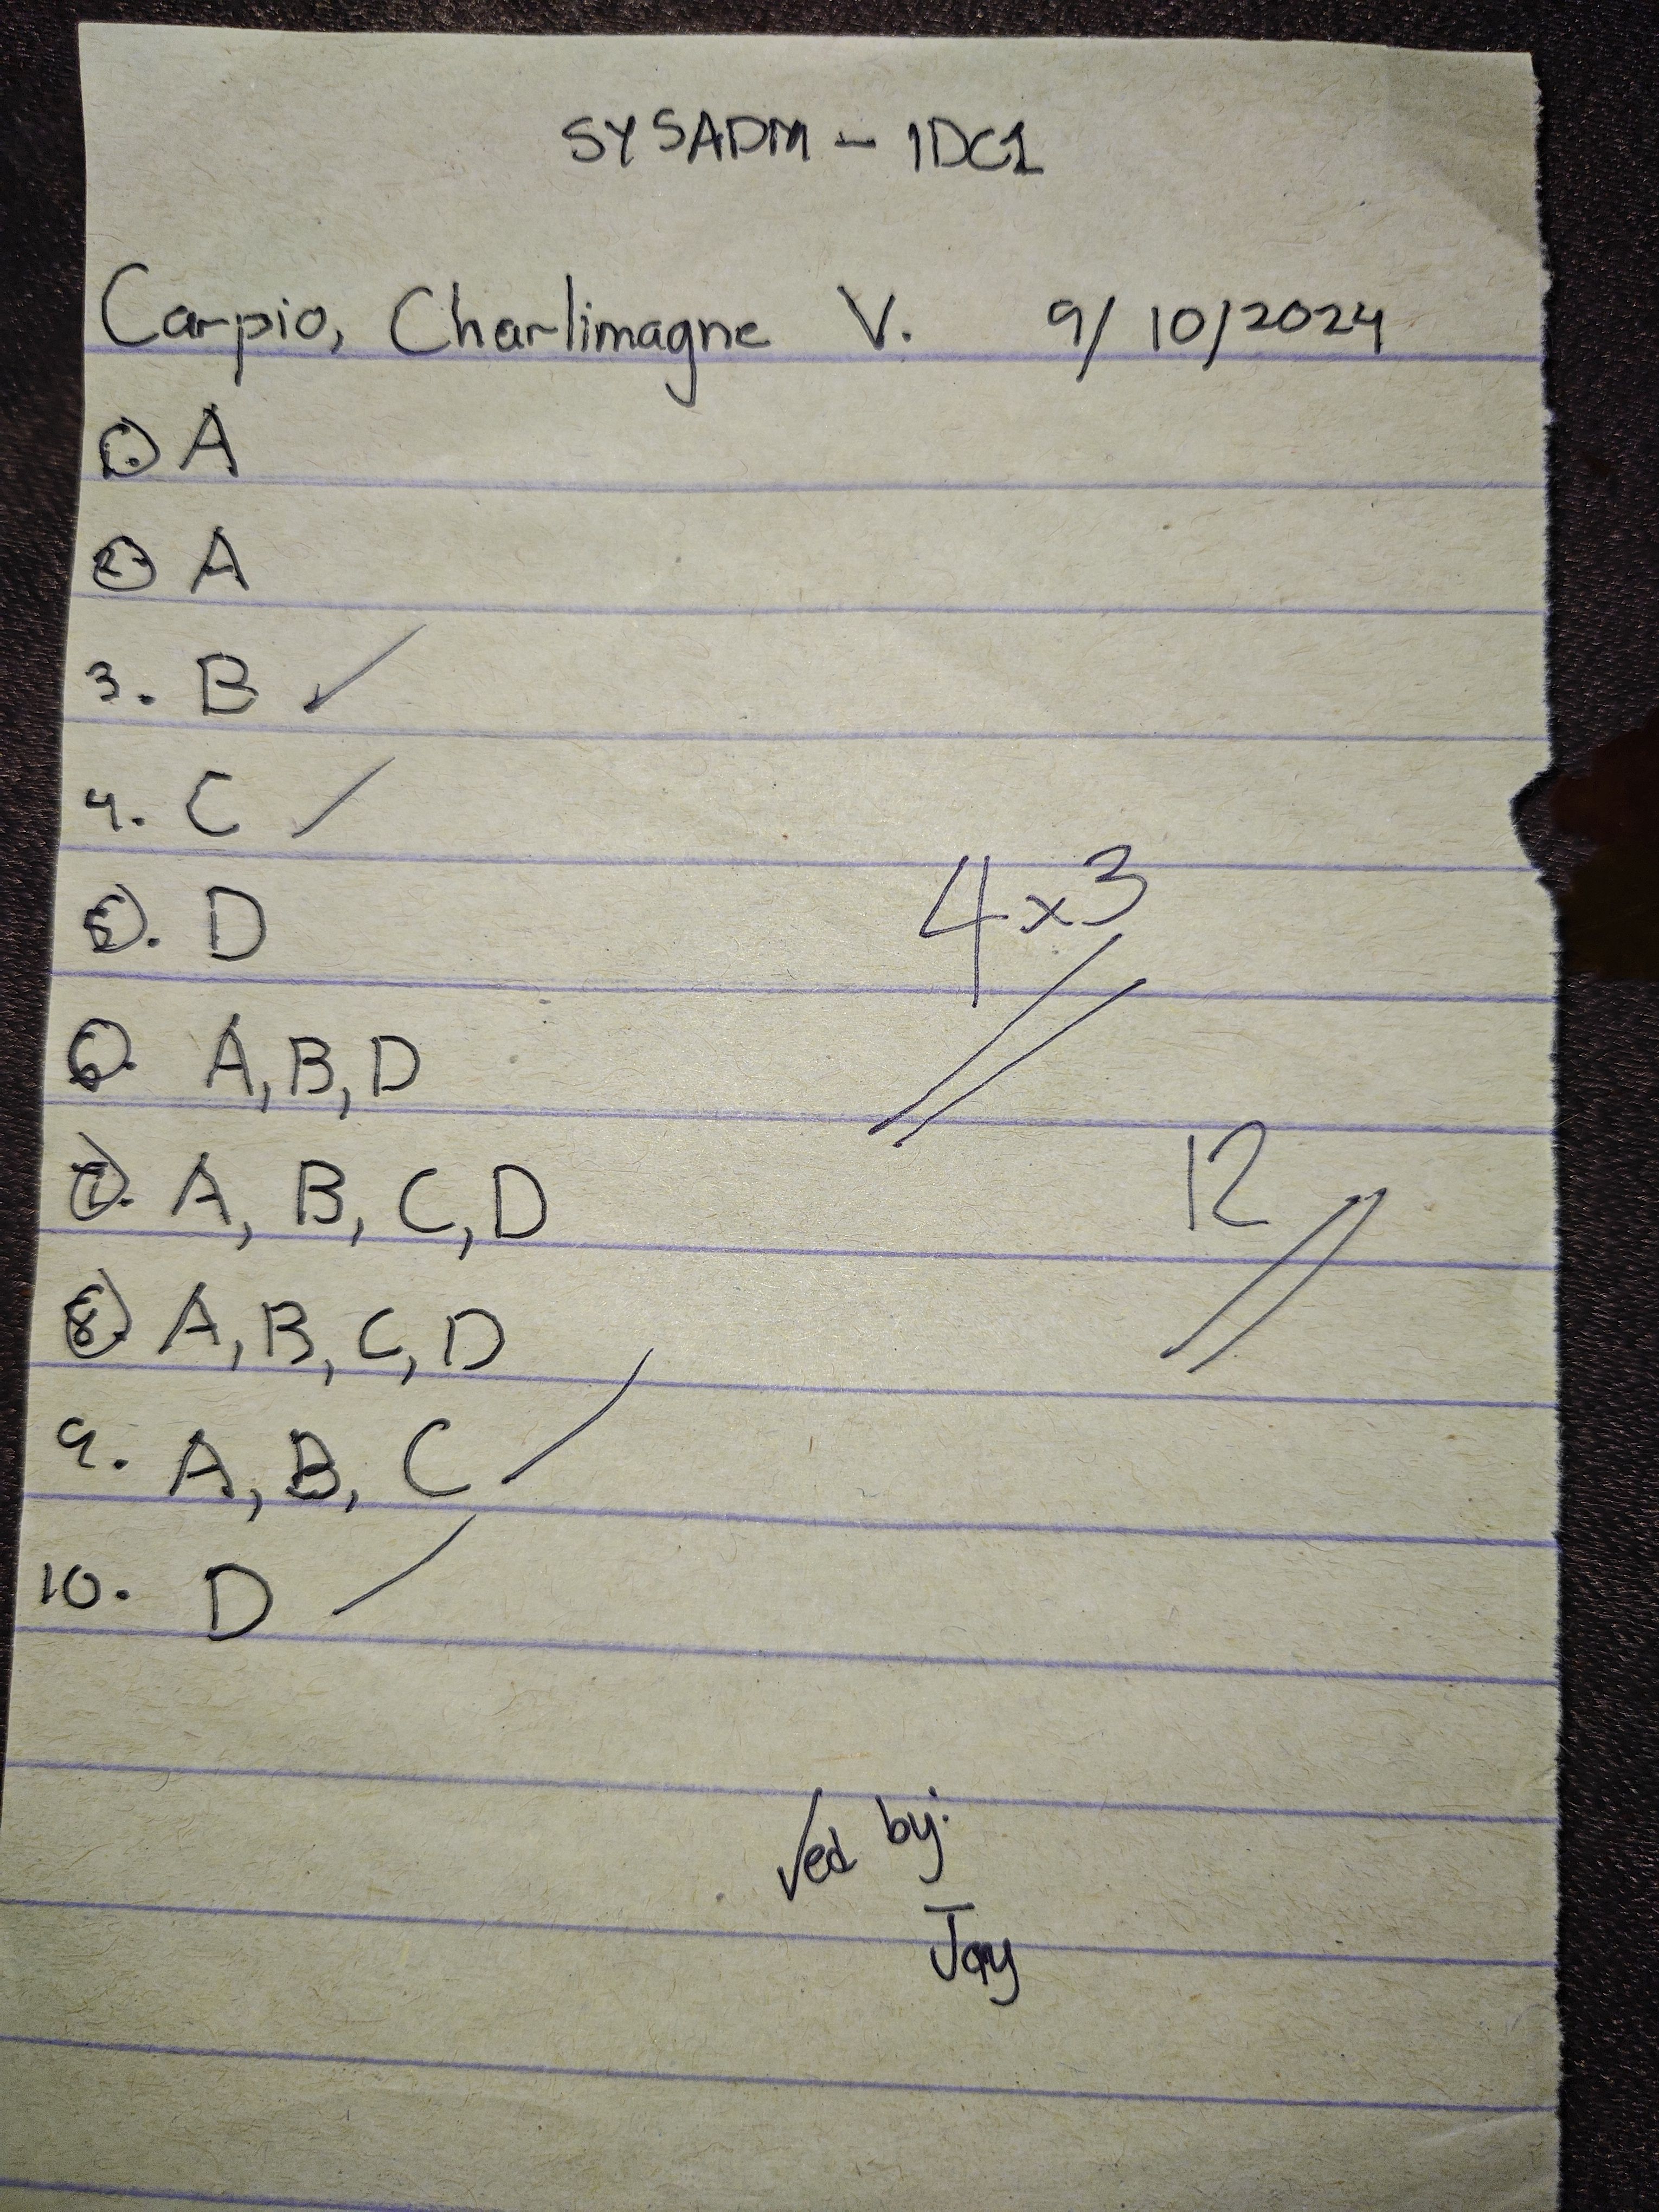 SYSADM - IDC1
Carpio, Charlimagne V. 9/10/2024
1. A
2. A
3. B ✓
4. C ✓
5. D
4x3
6. A, B, D
7. A, B, C, D
12
8. A, B, C, D
9. A, B, C ✓
10. D ✓
√ed by:
Jay